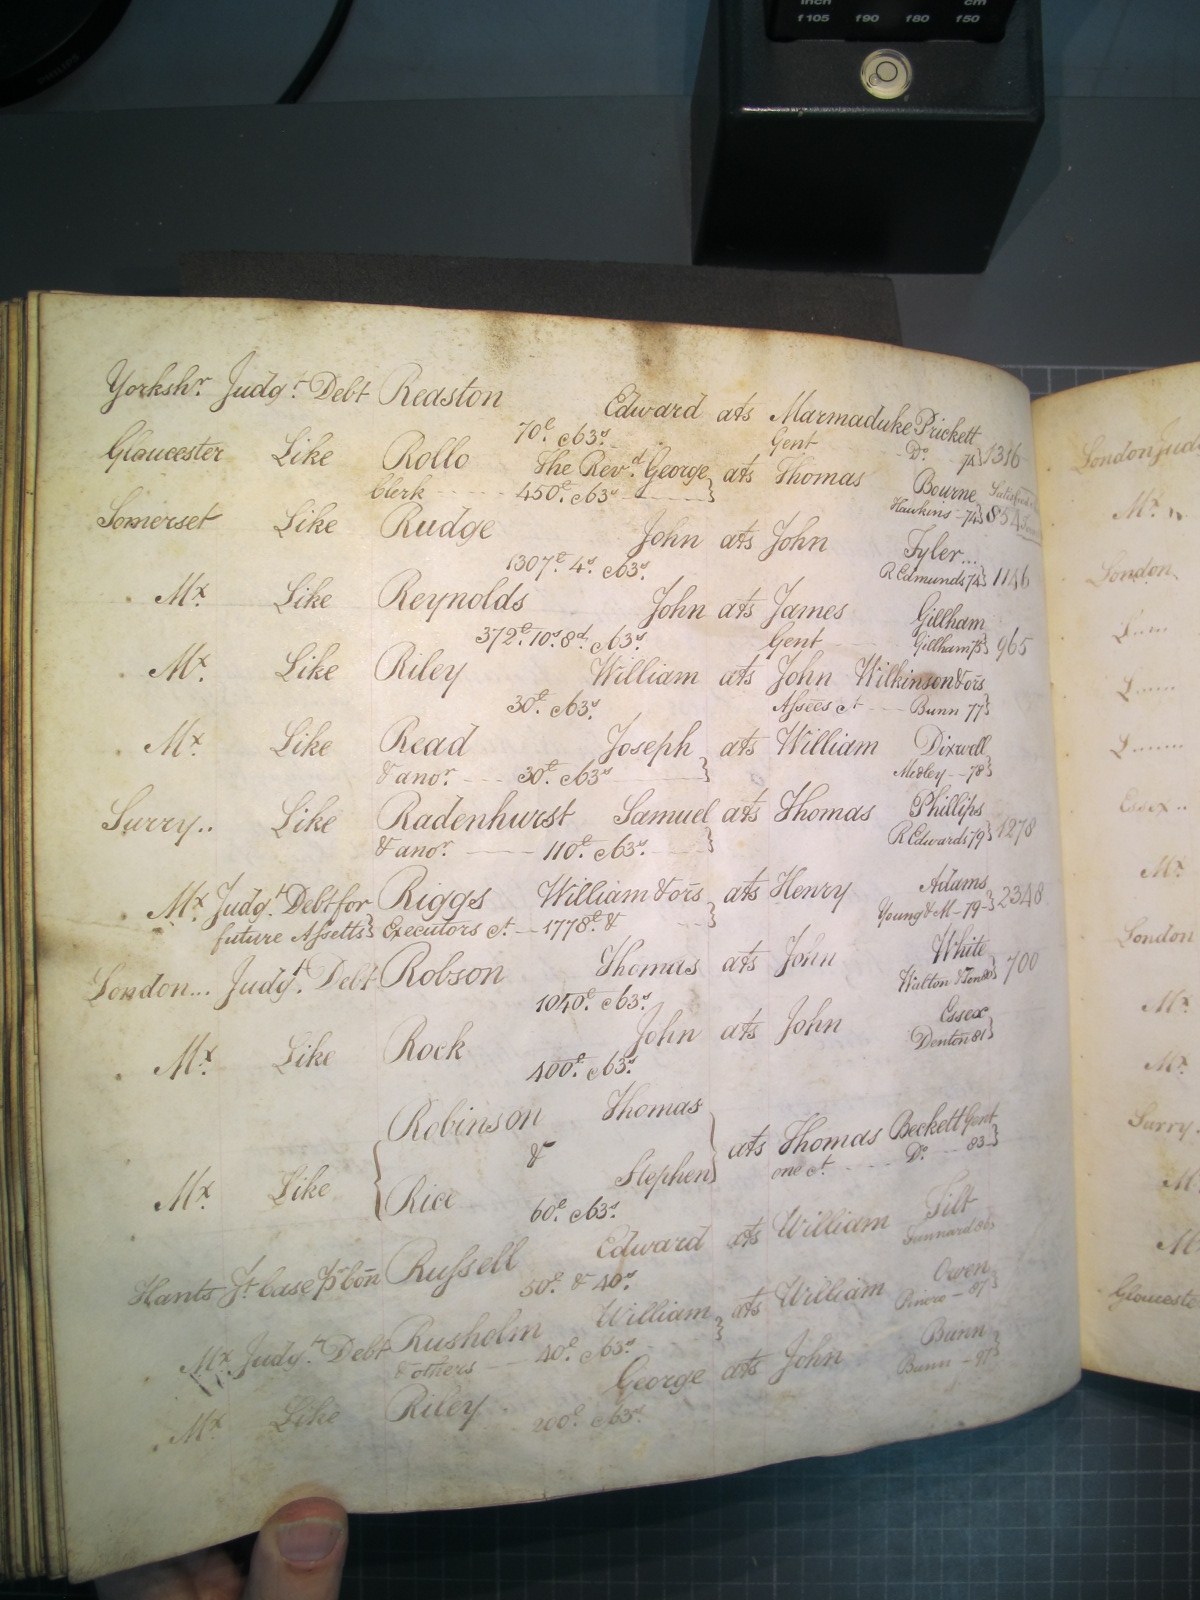 inch cm
f105 f90 f80 f50
PHILIPS
Yorkshr. Judgt. Debt Reaston Edward ats Marmaduke Prickett
70£. & 63s. Gent Do. 74} 1316
Gloucester Like Rollo The Revd. George } ats Thomas Bourne
Clerk 450£. & 63s Hawkins 74}
Somerset Like Rudge John ats John Tyler...
1307£. 4s. & 63s. R Edmunds 74} 1146
Mx. Like Reynolds John ats James Gillham
372£. 10s. 8d. & 63s. Gent Gillham 75} 965
Mx. Like Riley William ats John Wilkinson & ors
30£. & 63s. Assees &c Bunn 77}
Mx. Like Read Joseph } ats William Dixwell
& anor. 30£. & 63s Medley 78}
Surry.. Like Radenhurst Samuel } ats Thomas Phillips
& anor. 110£. & 63s. R Edwards 79} 1278
Mx. Judgt. Debt for Riggs William & ors } ats Henry Adams
future Assetts} Executors &c. 1778£. & Young & M - 79 } 2348
London... Judgt. Debt Robson Thomas ats John White
1040£. & 63s. Walton & 700
Mx. Like Rock John ats John Essex
400£. & 63s. Denton 81}
Robinson Thomas
& } ats Thomas Beckett Gent
Mx. Like { Rice Stephen one &c. Do. 83}
60£. & 63s.
Hants Russell Edward ats William Tilt
50£. & 40s.
Mx. Judgt. Debt Rusholm William } ats William Owen
& others 40£. & 63s. 87}
Mx. Like Riley George ats John Bunn
200£. & 63s. Bunn - 97}
London Judg
Mx.
London
L
L
L
Essex..
Mx.
London
Mx.
Mx.
Surry.
M
Mx
Glouceste